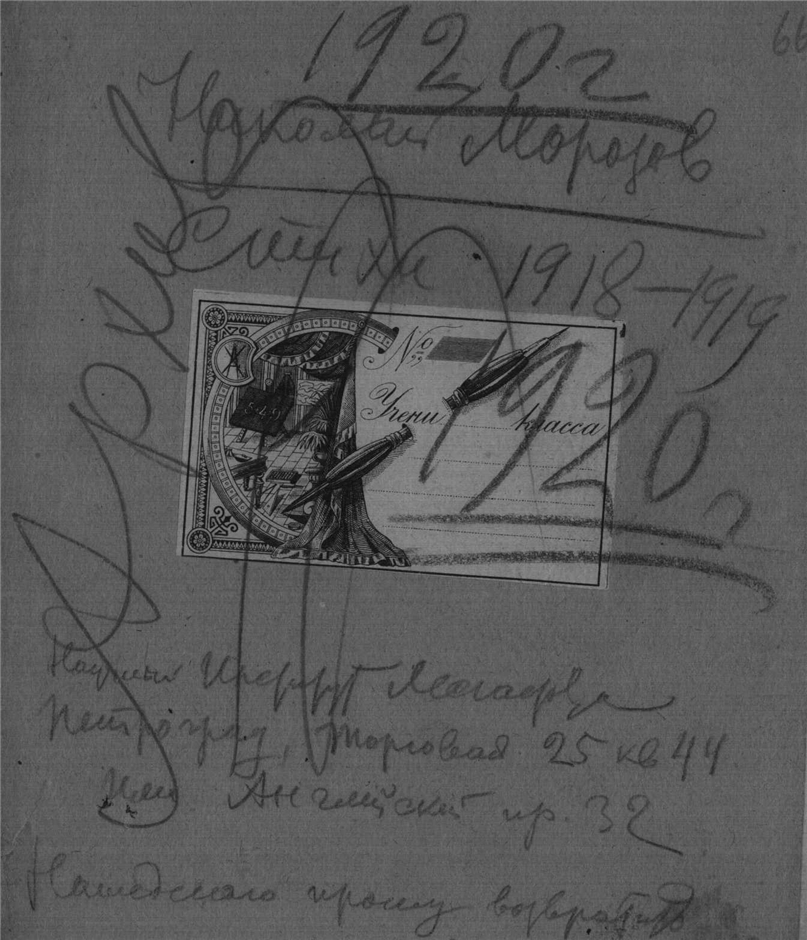 66
1920г
Николай Морозов
Архив
Стихи 1918-1919
№
Учени класса
1920г
Научный Лесгафта
Петроград, Торговая 25 кв 44
или Английский пр. 32
Нашедшего прошу возвратить